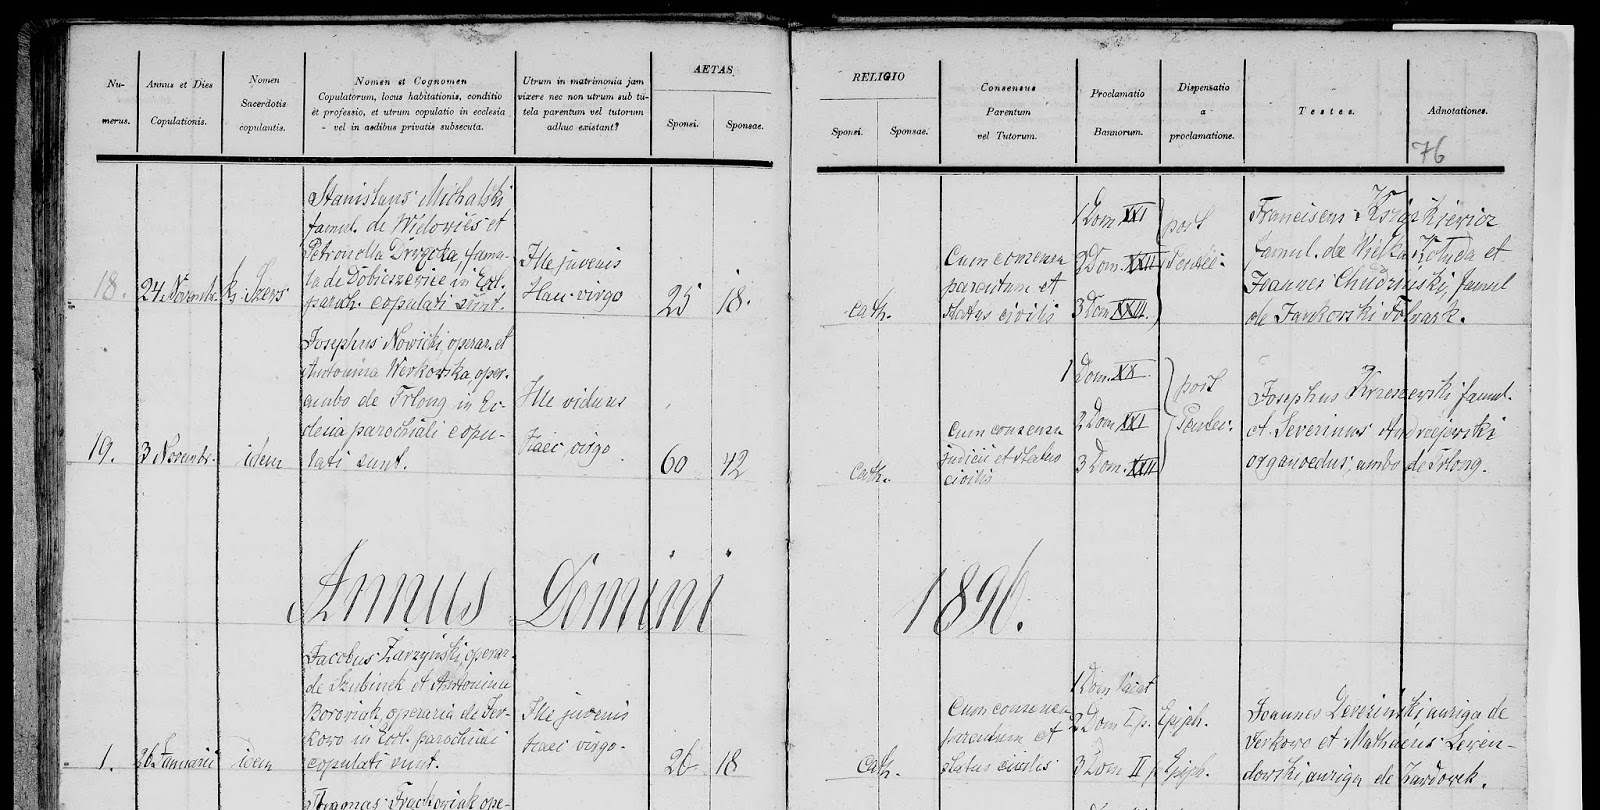 Nu-
merus.
Annus et Dies
Copulationis.
Nomen
Sacerdotis
copulantis.
Nomen et Cognomen
Copulatorum, locus habitationis, conditio
et professio, et utrum copulatio in ecclesia
vel in aedibus privatis subsecuta.
Utrum in matrimonia jam
vixere nec non utrum sub tu-
tela parentum vel tutorum
adhuc existant?
AETAS
Sponsi.
Sponsae.
RELIGIO
Sponsi.
Sponsae.
Consensus
Parentum
vel Tutorum.
Proclamatio
Bannorum.
Dispensatio
a
proclamatione.
Testes.
Adnotationes.
76
18.
24 Novembr.
Stanislaus Michalski
famul. de Widowies et
Petronella Drzyzga fama-
la de Dobieszewice in Eccl.
paroch. copulati sunt.
Ille juvenis
Haec virgo
25
18.
cath.
Cum consensu
parentum et
status civilis
1 Dom. XXI
2 Dom. XXII
3 Dom. XXIII.
post
Pentec.
Franciscus
famul. de Wielka Kołuda et
Joannes Chudziński, famul
de Jankowski Folwark.
19.
3 Novembr.
idem
Josephus Nowicki, operar. et
Antonina Werkowska, oper.
ambo de Trlong in Ec-
clesia parochiali copu-
lati sunt.
Ille viduus
Haec virgo
60
42
cath.
Cum consensu
judicii et status
civilis
1 Dom. XX
2 Dom. XXI
3 Dom. XXII
post
Pentec.
Josephus Krzeszewski famul.
et Severinus Andrzejewski
organoedus, ambo de Trlong.
Annus Domini 1896.
1.
26 Januarii
idem
Jacobus Zarzyński, operar.
de Szubinek et Antonina
Borowiak, operaria de Jer-
kowo in Eccl. parochiali
copulati sunt.
Ille juvenis
Haec virgo.
26
18
cath.
Cum consensu
parentum et
status civilis
1 Dom. vacat
2 Dom I p. Epiph.
3 Dom II p. Epiph.
Joannes
auriga de
Jerkowo et Mathaeus Lewan-
dowski, auriga de
Thomas
ope-